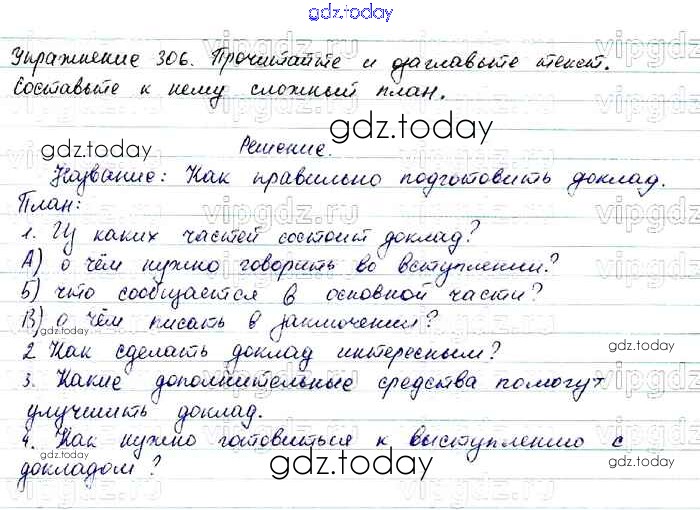 gdz.today
Упражнение 306. Прочитайте и озаглавьте текст.
Составьте к нему сложный план.
gdz.today
gdz.today
Решение.
Название: Как правильно подготовить доклад.
План:
1. Из каких частей состоит доклад?
А) о чём нужно говорить во вступлении?
Б) что сообщается в основной части?
В) о чём писать в заключении?
gdz.today
gdz.today
2 Как сделать доклад интересным?
3. Какие дополнительные средства помогут
улучшить доклад.
4. Как нужно готовиться к выступлению с
докладом?
gdz.today
gdz.today